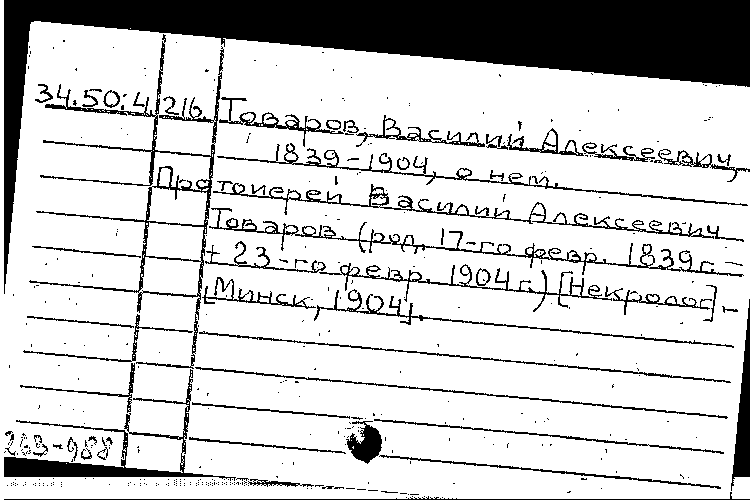 34.50:4.216. Товаров, Василий Алексеевич,
1839-1904, о нем.
Протоиерей Василий Алексеевич
Товаров. (род. 17-го февр. 1839г. –
+ 23-го февр. 1904г.) [Некролог] –
[Минск, 1904].
263-988